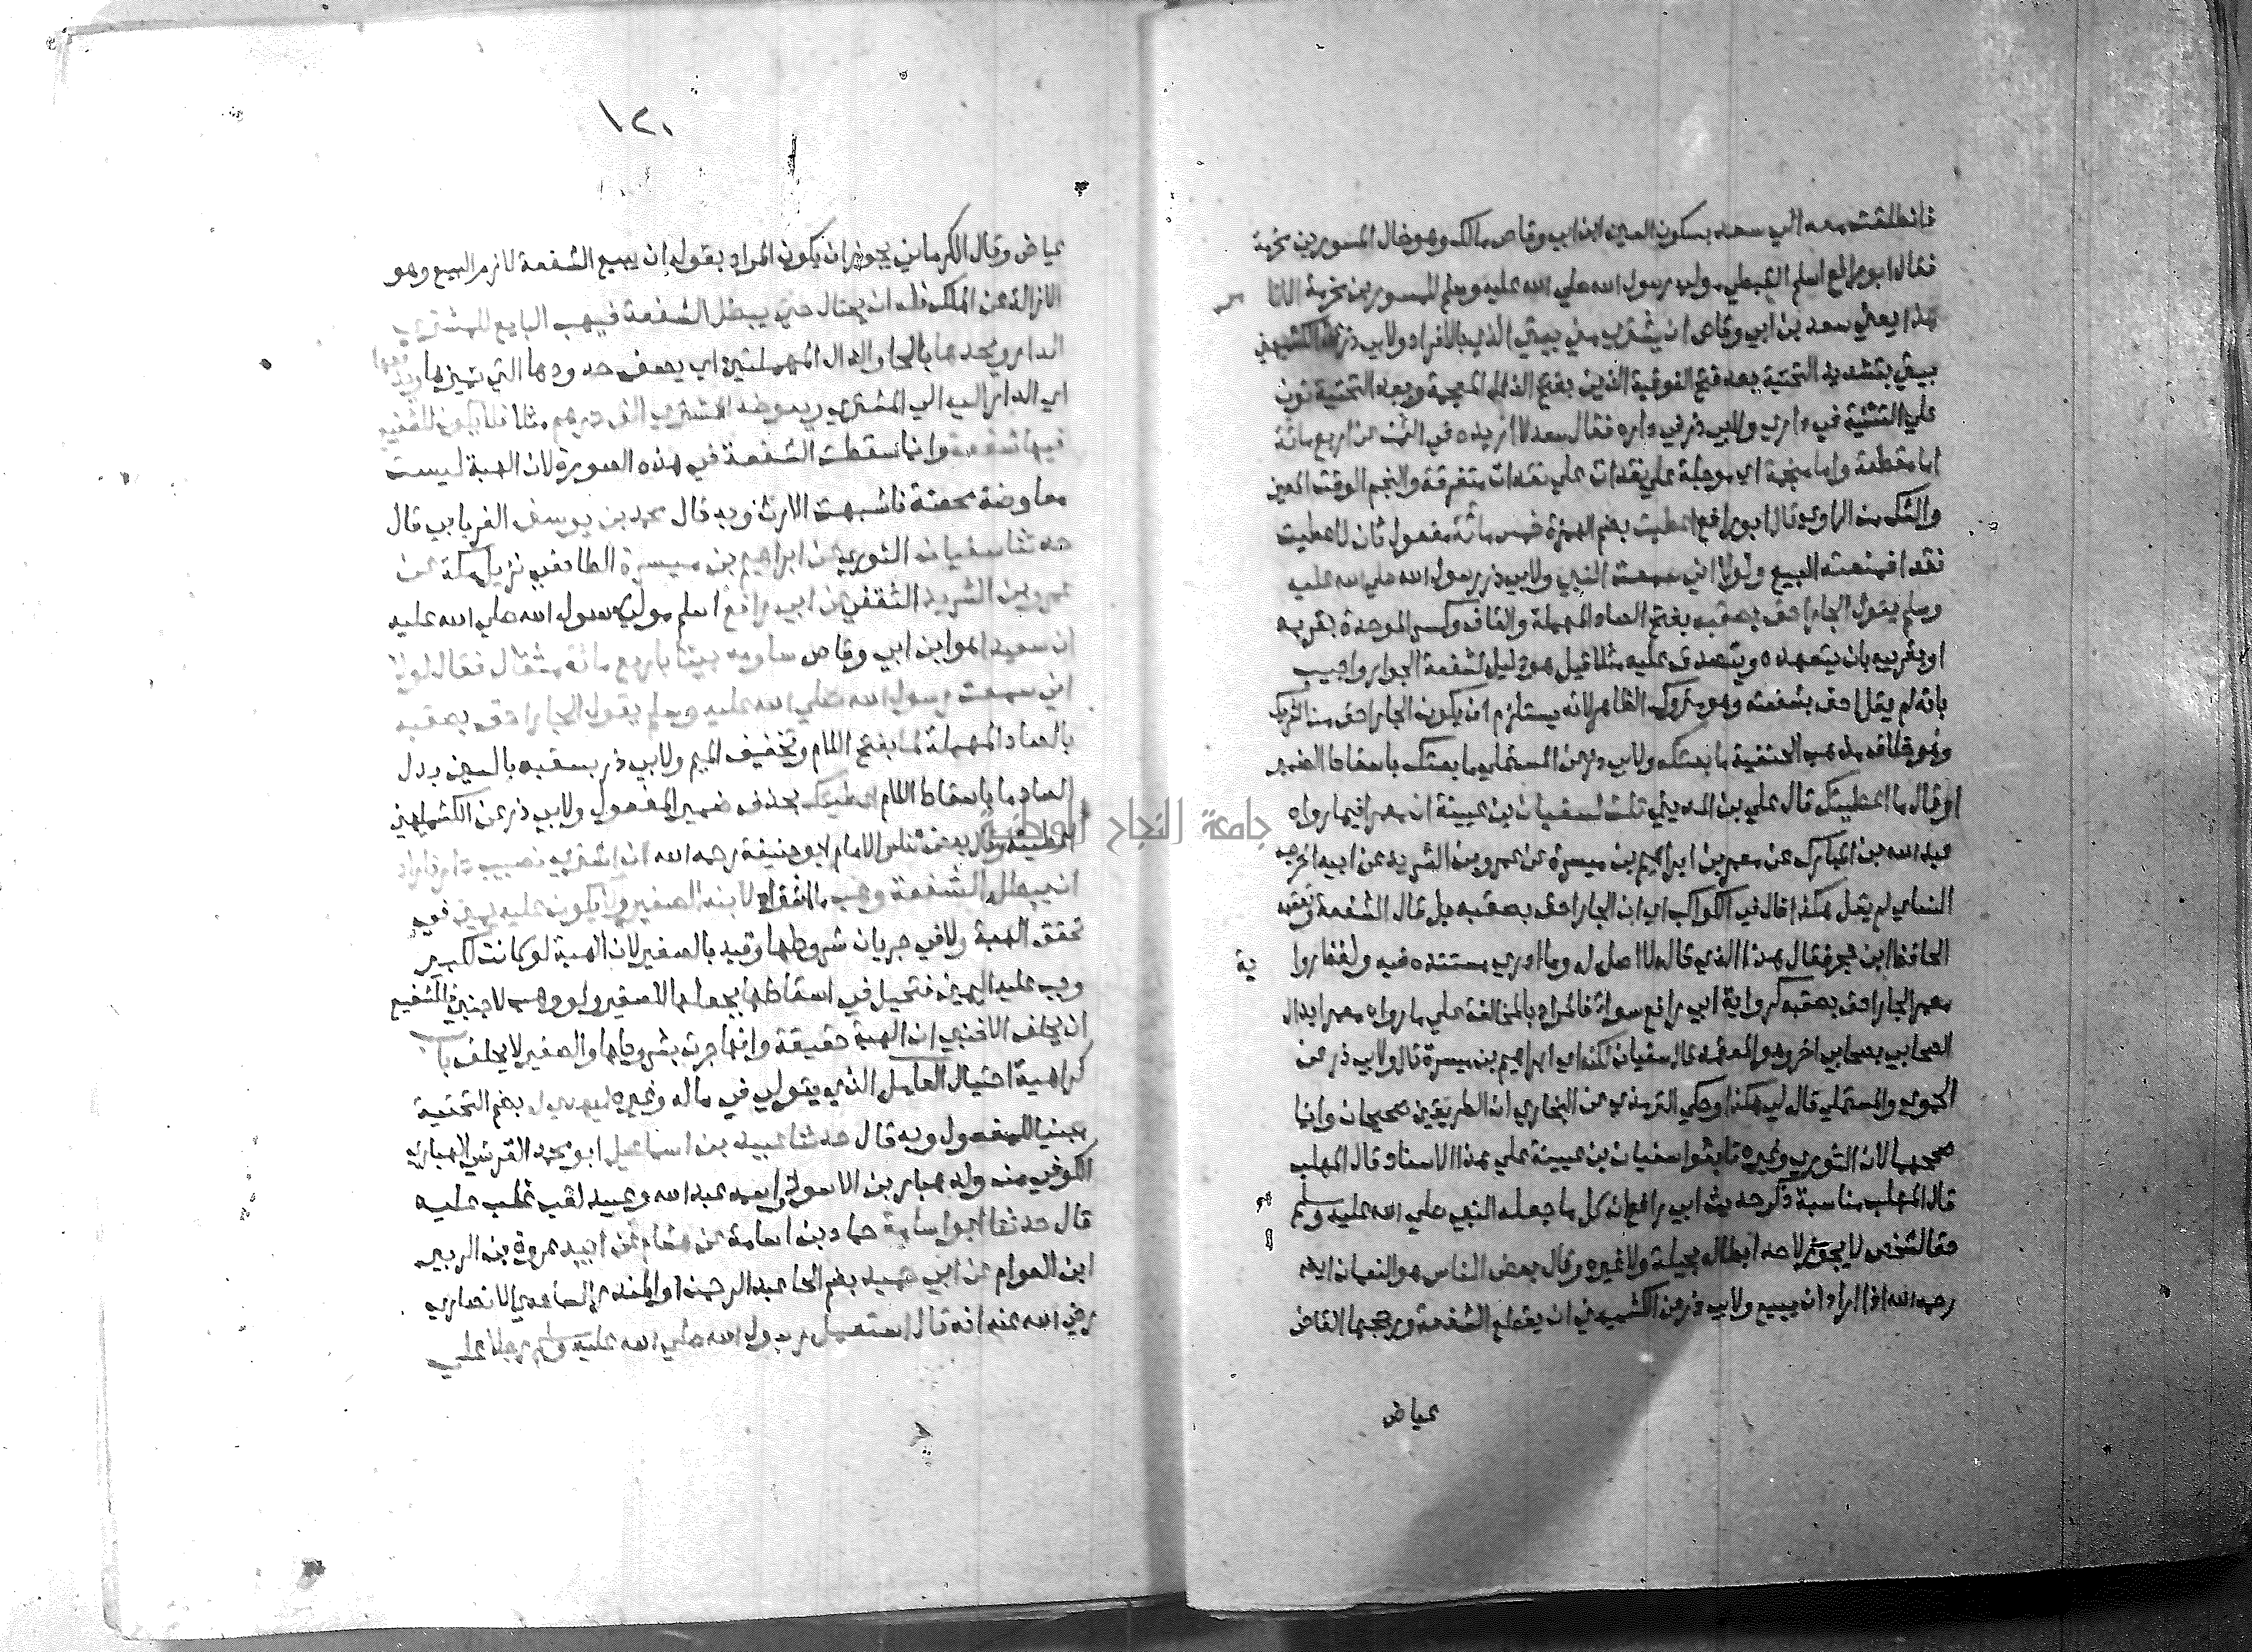 فانطلقت معه الي سعد بسكون العين ابن ابي وقاص مالك وهو خال المسور بن مخرمة
فقال ابو رافع اسلم القبطي مولي رسول الله صلي الله عليه وسلم للمسور بن مخرمة الا تامر
هذا يعني سعد بن ابي وقاص ان يشتري مني بيتي الذي بالافراد ولابي ذر عن الكشميهني
بيتي بتشديد التحتية بعد فتح الفوقية الذين بفتح الذال المعجمة وبعد التحتية نون
علي التثنية في داري ولابي ذر في داره فقال سعد لا ازيده في الثمن عن اربع مائة
اما مقطعة واما منجمة اي موجلة علي نقدات علي نقدات متفرقة والنجم الوقت المعين
والشك من الراوي قال ابو رافع اعطيت بضم الهمزة خمس مائة مفعول ثان لاعطيت
نقدا فمنعته البيع ولولا اني سمعت النبي ولابي ذر رسول الله صلي الله عليه
وسلم يقول الجار احق بصقبه بفتح الصاد المهملة والقاف وكسر الموحدة بقربه
او بقربيه بان يتعهده ويتصدق عليه مثلا قيل هو دليل لشفعة الجوار واجيب
بانه لم يقل احق بشفعته وهو متروك الظاهر لانه يستلزم ان يكون الجار احق من الشريك
وهو خلاف مذهب الحنفية ما بعتكه ولابي ذر عن المستملي ما بعتك باسقاط الضمير
او قال ما اعطيتك قال علي بن المديني قلت لسفيان بن عيينة ان معمرا فيما رواه
عبد الله بن المبارك عن معمر بن ابراهيم بن ميسرة عن عمرو بن الشريد عن ابيه اخرجه
النساي لم يقل هكذا قال في الكواكب اي ان الجار احق بصقبه بل قال الشفعة وتعقبه
الحافظ ابن حجر فقال هذا الذي قاله لا اصل له وما ادري مستنده فيه ولفظ رواية
معمر الجار احق بصقبه كرواية ابي رافع سواء فالمراد بالمخالفة علي ما رواه معمر ابدال
الصحابي بصحابي اخر وهو المعتمد قال سفيان لكنه اي ابراهيم بن ميسرة قال ولابي ذر عن
الحموي والمستملي قال لي هكذا وحكي الترمذي عن البخاري ان الطريقين صحيحان وانما
صححهما لان الثوري وغيره تابعوا سفيان بن عيينة علي هذا الاسناد وقال المهلب
قال المهلب مناسبة ذكر حديث ابي رافع ان كل ما جعله النبي صلي الله عليه وسلم
حقا لشخص لا يجوز لاحد ابطاله بحيلة ولا غيره وقال بعض الناس هو النعمان ايضا
رحمه الله اذا اراد ان يبيع ولابي ذر عن الكشميهني ان يقطع الشفعة ورجحها القاضي
عياض
١٢٠
عياض وقال الكرماني يجوز ان يكون المراد بقوله ان يبيع الشفعة لازم البيع وهو
الازالة عن الملك فله ان يحتال حتي يبطل الشفعة فيهب البايع للمشتري
الدار ويحدها بالحا والدال المهملتين اي يصف حدودها التي تميزها ويدفعها
اي الدار اليه الي المشتري ويعوضه المشتري الف درهم مثلا فلا يكون للشفيع
فيها شفعة وانما سقطت الشفعة في هذه الصورة لان الهبة ليست
معاوضة محضة فاشبهت الارث وبه قال محمد بن يوسف الفريابي قال
حدثنا سفيان الثوري عن ابراهيم بن ميسرة الطائفي نزيل مكة عن
عمرو بن الشريد الثقفي عن ابي رافع اسلم مولي رسول الله صلي الله عليه
ان سعيدا هو ابن ابي وقاص ساومه بيتا باربع مائة مثقال فقال لولا
اني سمعت رسول الله صلي الله عليه وسلم يقول الجار احق بصقبه
بالصاد المهملة لما بفتح اللام وتخفيف الميم ولابي ذر بسقبه بالسين بدل
الصاد ما باسقاط اللام اعطيتك بحذف ضمير المفعول ولابي ذر عن الكشميهني
اعطيتكه وقال بعض الناس الامام ابو حنيفة رحمه الله ان اشتري نصيب دار فاراد
ان يبطل الشفعة وهب ما اشتراه لابنه الصغير ولا يكون عليه يمين في
تحقق الهبة ولا في جريان شروطها وقيد بالصغير لان الهبة لو كانت لكبير
وجب عليه اليمين فتحيل في اسقاطها بجعلها للصغير ولو وهب لاجنبي فللشفيع
ان يحلف الاجنبي ان الهبة حقيقة وانها جرت بشروطها والصغير لا يحلف باب
كراهية احتيال العامل الذي يتولي في ماله وغيره ليهدي له بضم التحتية
مبنيا للمفعول وبه قال حدثنا عبيد بن اسماعيل ابو محمد القرشي الهباري
الكوفي من ولد هبار بن الاسود واسمه عبد الله وعبيد لقب غلب عليه
قال حدثنا ابو اسامة حماد بن اسامة عن هشام عن ابيه عروة بن الزبير
ابن العوام عن ابي حميد بضم الحا عبد الرحمن او المنذر الساعدي الانصاري
رضي الله عنه انه قال استعمل رسول الله صلي الله عليه وسلم رجلا علي
جامعة النجاح الوطنية